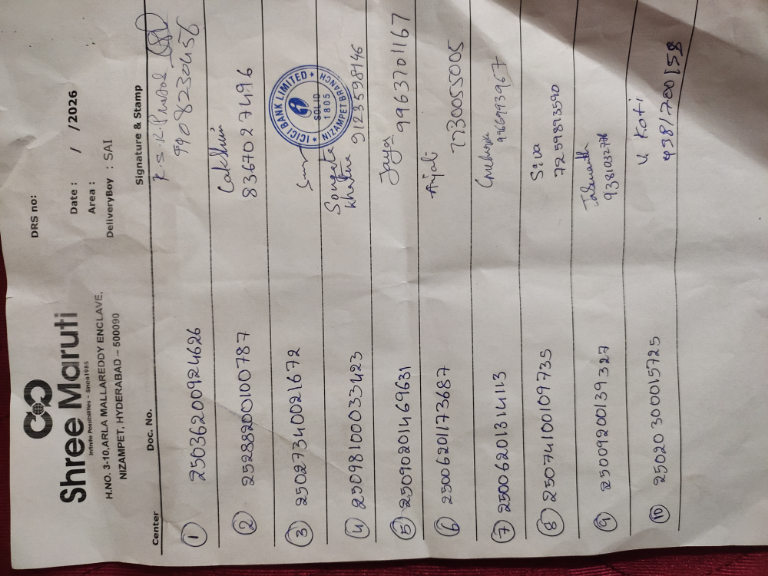 Shree Maruti
Infinite Possibilities - Seamless
H.NO. 3-10,ARLA MALLAREDDY ENCLAVE,
NIZAMPET, HYDERABAD – 500090
DRS no:
Date : / /2026
Area :
DeliveryBoy : SAI
Center Doc. No. Signature & Stamp
① 25036200924626
9908230456
② 25288200100787 Lakshmi
8367027496
③ 25027340021672
ICICI BANK LIMITED
SOL ID
1805
NIZAMPET BRANCH
④ 25098100033423 9123598146
⑤ 25090201469631 Jaya 9963701167
⑥ 25006201173687 Anjali 7730055005
⑦ 25006201314113
⑧ 25074100109735 Siva
7259893590
⑨ 25009200139327
⑩ 25020300015725 U Koti
9381700158